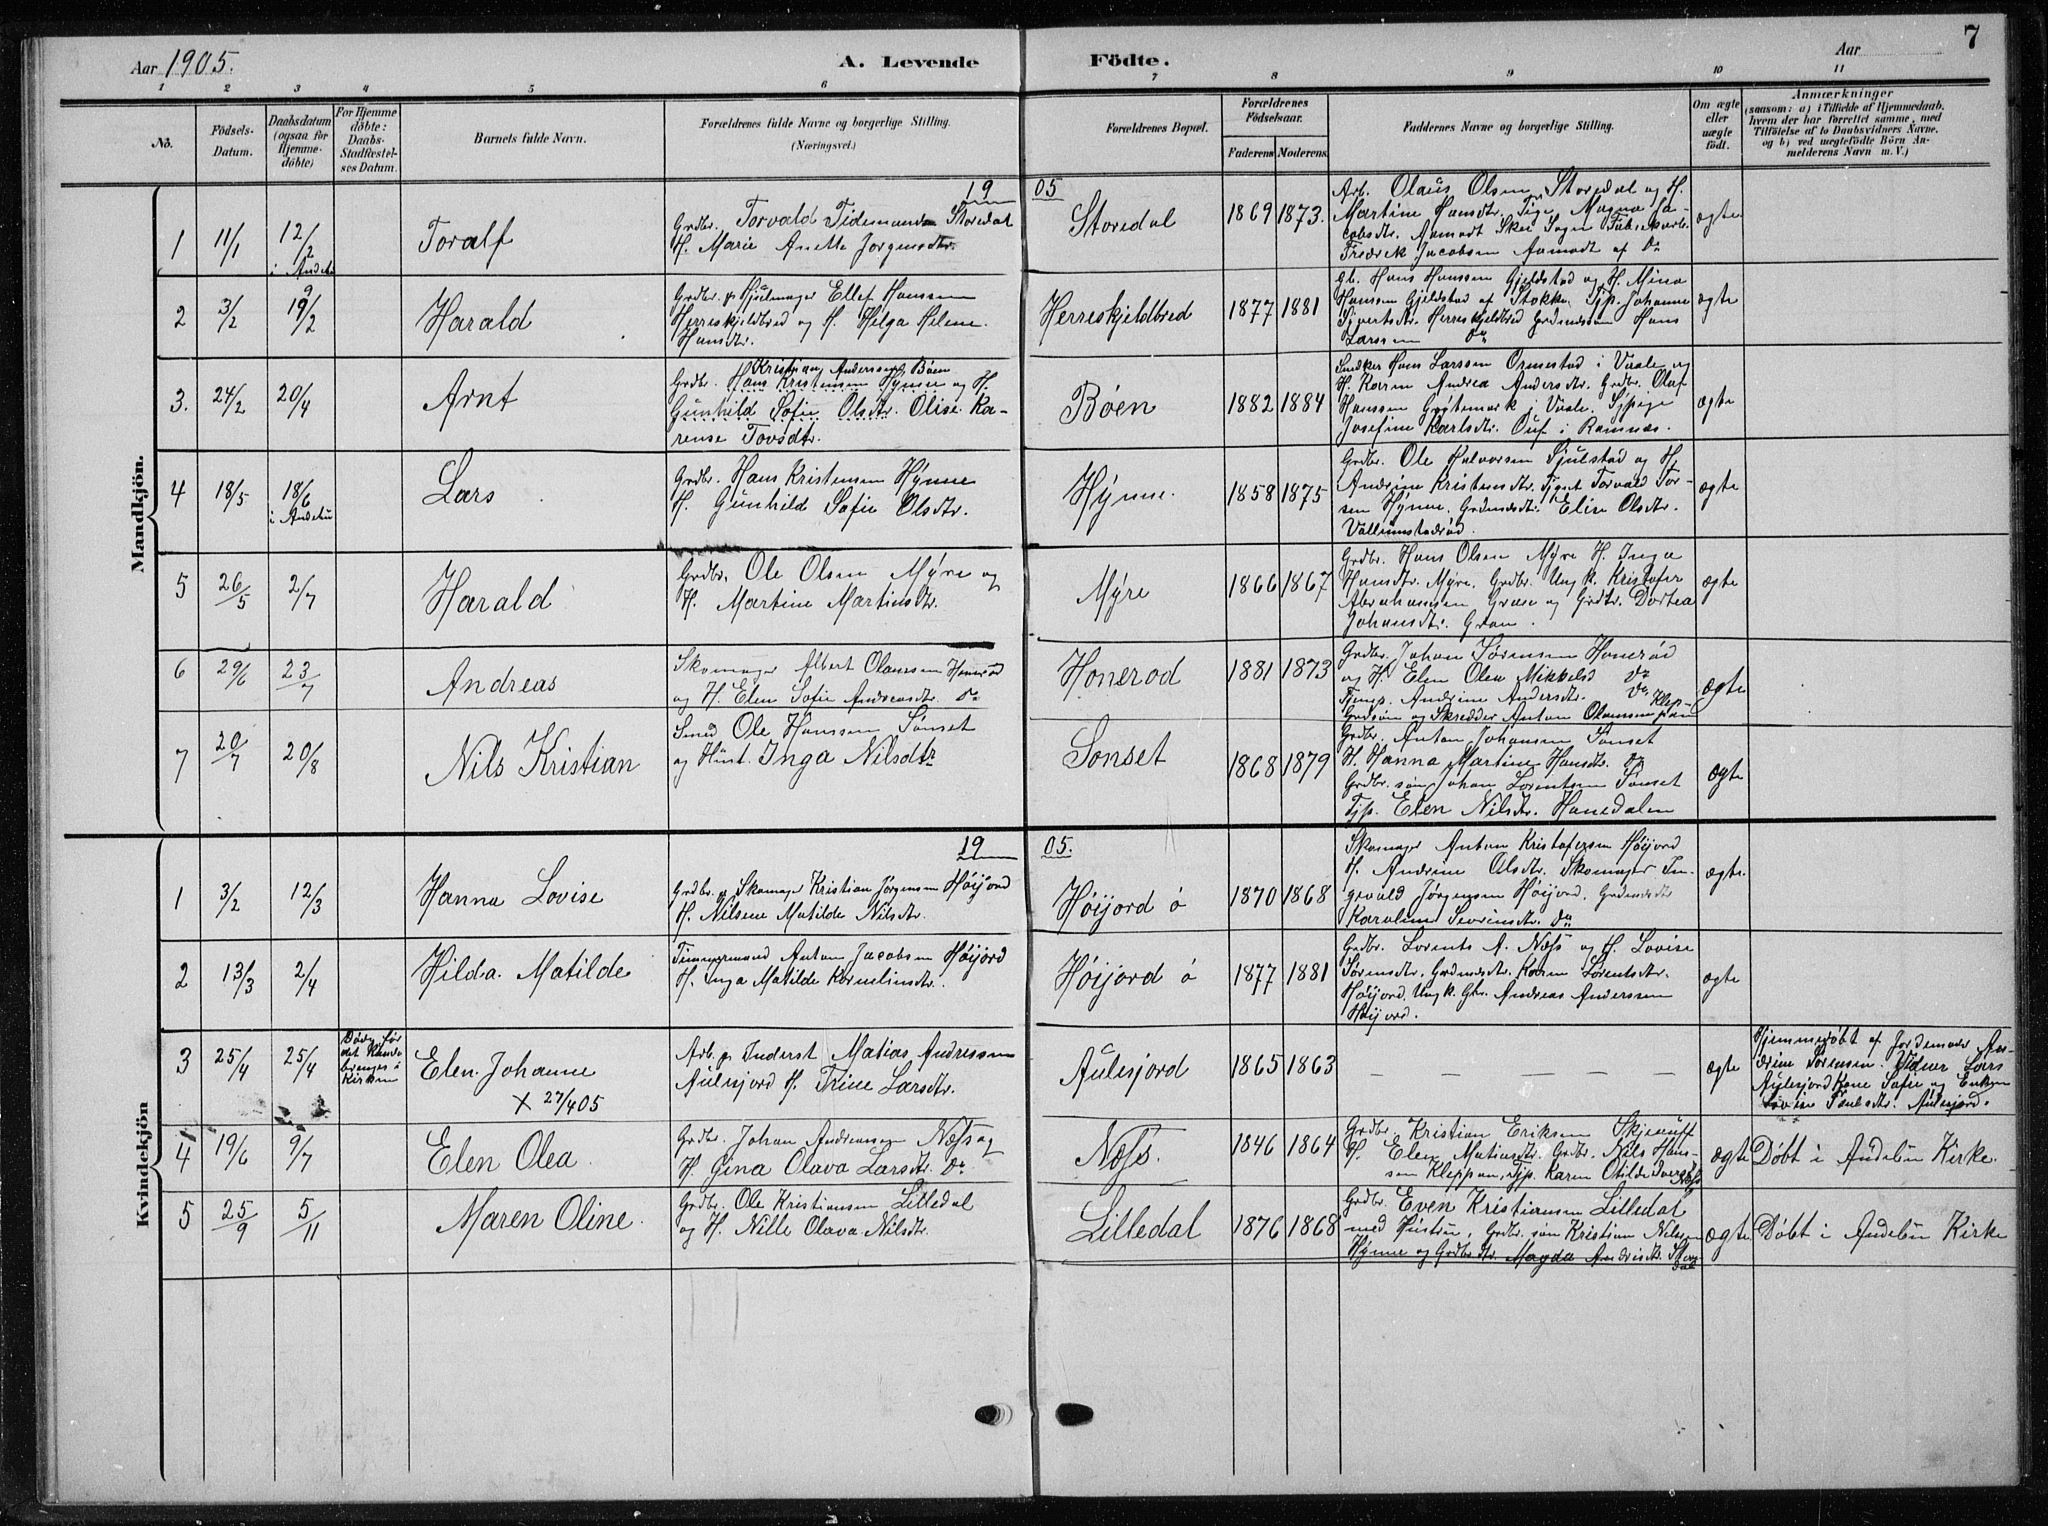 Aar 1905. A. Levende Födte. Aar 7
1 2 3 4 5 6 7 8 9 10 11
No. Födsels-Datum. Daabsdatum (ogsaa for Hjemmedöbte) For Hjemmedöbte: Daabs-Stadfæstelses Datum. Barnets fulde Navn. Forældrenes fulde Navne og borgerlige Stilling. (Næringsvei.) Forældrenes Bopæl. Forældrenes Födselsaar. Faderens Moderens. Faddernes Navne og borgerlige Stilling. Om ægte eller uægte födt. Anmærkninger (saasom: a) i Tilfælde af Hjemmedaab, hvem der har forrettet samme, med Tilföielse af to Daabsvidners Navne, og b) ved uægtefödte Börn Anmelderens Navn m. V.)
Mandkjön.
1905
1 11/1 12/2 i Andebu Toralf
Grdbr. Torvald Tidemand Storedal
H. Marie Anette Jørgensdtr.
Storedal 1869 1873.
Arb. Olaus Olsen Storedal og H.
Martine Hansdtr. Pige Magna Ja-
cobsdtr. Aamodt Skee Sogn Fabrikarb.
Fredrik Jacobsen Aamodt af do
ægte
2 3/2 19/2 Harald
Grdbr. og Hjulmager Ellef Hanssen
Herreskjeldbred og H. Helga Helene
Hansdtr.
Herreskjeldbred 1877 1881
Gb. Hans Hanssen Gjeldstad og H. Mina
Hanssen Gjeldstad af Stokke. Tjp. Johanne
Sivertsdtr. Herreskjeldbred Grdmandssøn Hans
Larssen do
ægte
3. 24/2 20/4 Arnt
Kristian Anderssen Bøen
Grdbr. Hans Kristensen Hynne og H.
Gunhild Sofie Olsdtr. Olise Ka-
rense Tovsdtr.
Bøen 1882 1884
Snedker Hans Larssen Ormestad i Vaale og
H. Karen Andrea Andersdtr. Grdbr. Olaf
Hanssen Grytemark i Vaale. Tjpige
Josefine Karlsdtr. Ouf i Ramnæs.
ægte
4 18/5 18/6 i Andebu Lars
Grdbr. Hans Kristensen Hynne
H. Gunhild Sofie Olsdtr.
Hynne. 1858 1875
Grdbr. Ole Halvorsen Sjulstad og H.
Andrine Kristensdtr. Tjgut Torvald Tor-
sen Hynne. Grdmandsdtr. Elise Olsdtr.
ægte
5 26/5 2/7 Harald
Grdbr. Ole Olsen Myre og
H. Martine Martinsdtr.
Myre 1866 1867
Grdbr. Hans Olsen Myre H. Inga
Hansdtr. Myre. Grdbr. Ung k. Kristofer
Abrahamsen Gran og Grdtr. Dortea
Johansdtr. Gran.
ægte
6 29/6 23/7 Andreas
Skomager Albert Olaussen Honerød
og H. Elen Sofie Andreasdtr. do
Honerod 1881 1873
Grdbr. Johan Sørensen Honerød
og H. Elen Olea Mikkelsd do
Tjenp. Andrine Andersdtr. do
Grdsøn og Skrædder Anton Olaussen Kleppan
ægte
7 20/7 20/8 Nils Kristian
Smed Ole Hanssen Sønset
og Hust. Inga Nilsdtr
Sonset 1868 1879
Grdbr. Anton Johansen Sønset
H. Hanna Martine Hansdtr. do
Grdbr. søn Johan Lorentsen Sønset
Tjp. Elen Nilsdtr. Hanedalen
ægte
Kvindekjön
1905.
1 3/2 12/3 Hanna Lovise
Grdbr. og Skomager Kristian Jørgensen Høijord
H. Nilsine Matilde Nilsdtr.
Høijord ø 1870 1868
Skomager Anton Kristofersen Høijord
H. Andrine Olsdtr. Skomager In-
gevald Jørgensen Høijord. Grdmandsdtr
Karoline Sevrinsdtr. do
ægte.
2 13/3 2/4 Hilda Matilde
Tømmermand Anton Jacobsen Høijord
H. Inga Matilde Kornelinsdtr.
Høijord ø 1877 1881
Grdbr. Lorents A. Næss og H. Lovise
Sørensdtr. Grdmandsdtr. Karen Lorentsdtr.
Høijord. Ung k. Gbr. Andreas Anderssen
Høijord.
ægte
3 25/4 25/4 Døde før det kunde bringes i Kirken Elen Johanne
x 27/4 05
Arb. og Inderst Matias Andressen
Aulesjord H. Trine Larsdtr.
Aulesjord 1865 1863 — — — — — — ægte
Hjemmedøbt af Jordemoder An-
drine Sørensen. Vidner Lars
Aulesjord Kone Sofie og Enken
Lovise Paulsdtr. Aulesjord.
4 19/6 9/7 Elen Olea
Grdbr. Johan Andreassen Næss og
H. Gina Olava Larsdtr. do
Næss. 1846 1864
Grdbr. Kristian Eriksen Skjerauff
H. Elen Matiasdtr. Grdbr. Nils Hans-
sen Kleppan, Tjp. Karen Otilde Ivers Næss
ægte Døbt i Andebu Kirke.
5 25/9 5/11 Maren Oline
Grdbr. Ole Kristiansen Lilledal
og H. Nille Olava Nilsdtr.
Lilledal 1876 1868
Grdbr. Even Kristiansen Lilledal
med Hustru, Grdbr. søn Kristian Nilssen
Hynne og Grdbr. dtr. Magda Andrisdtr. Storedal
ægte Døbt i Andebu Kirke